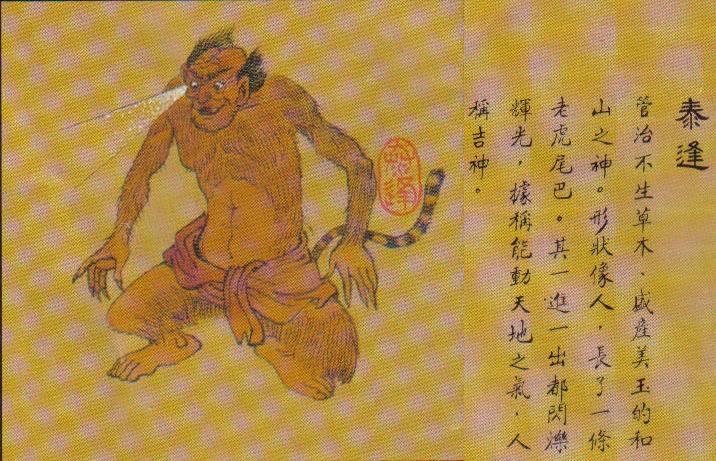 泰逢
管治不生草木、盛產美玉的和
山之神。形狀像人，長了一條
老虎尾巴。其一進一出都閃爍
輝光，據稱能動天地之氣，人
稱吉神。
泰逢